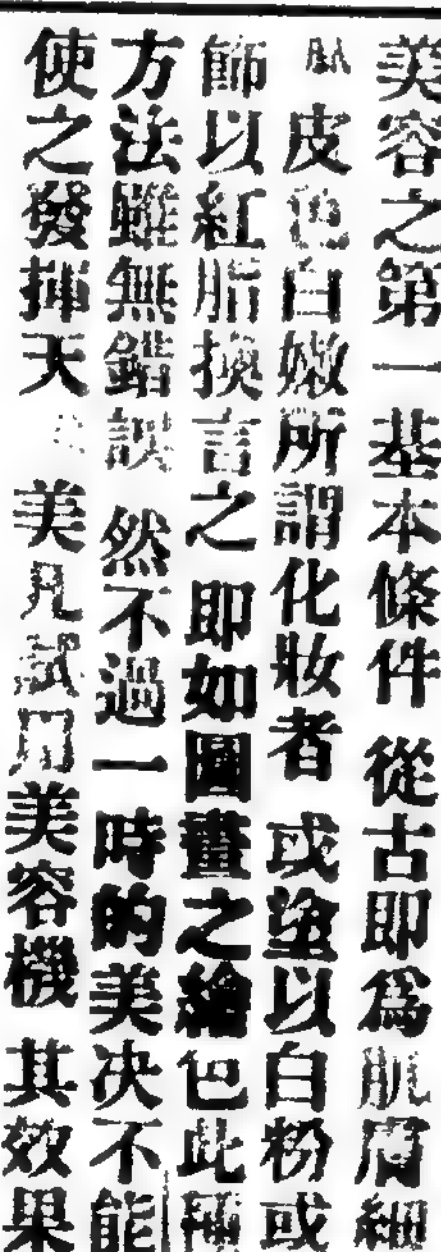 美容之第一基本條件 從古即爲肌膚細
皮色白嫩所謂化妝者 或塗以白粉或
飾以紅脂換言之 即如圖畫之繪色此種
方法雖無錯誤 然不過一時的美決不能
使之發揮天 美凡試用美容機 其效果